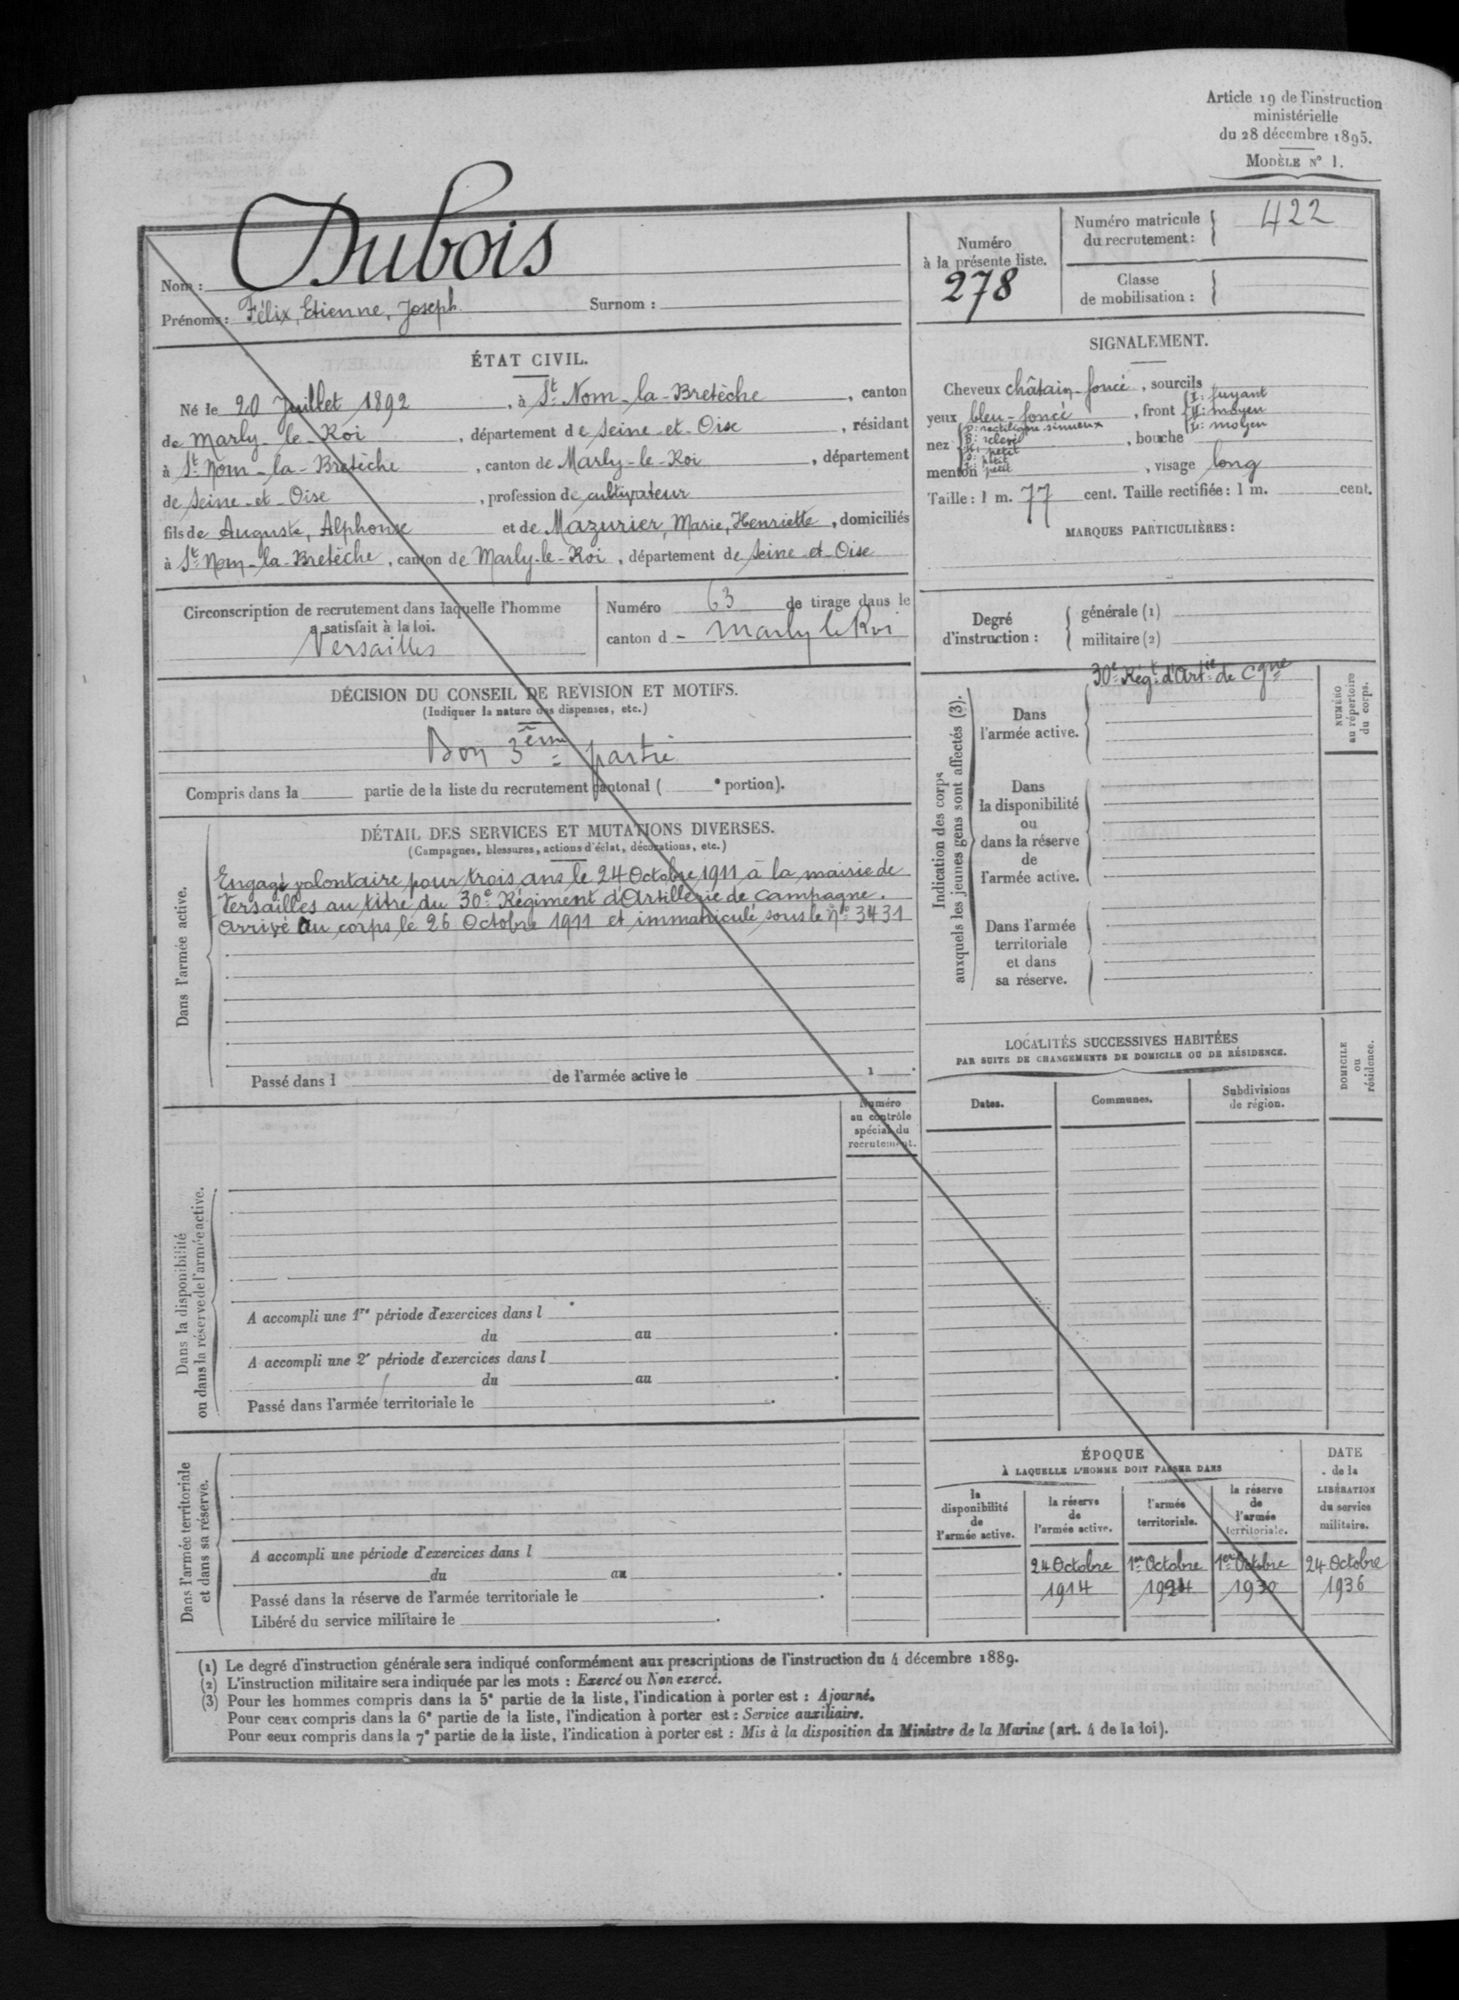 Article 19 de l'instruction
ministérielle
du 28 décembre 1895.
MODÈLE N° 1.
Nom : Dubois
Prénoms : Félix, Etienne, Joseph Surnom :
Numéro
à la présente liste.
278
Numéro matricule
du recrutement : 422
Classe
de mobilisation :
ÉTAT CIVIL.
Né le 20 Juillet 1892, à St Nom-la-Bretèche, canton
de Marly-le-Roi, département de Seine-et-Oise, résidant
à St Nom-la-Bretèche, canton de Marly-le-Roi, département
de Seine-et-Oise, profession de cultivateur
fils de Auguste, Alphonse et de Mazurier, Marie, Henriette, domiciliés
à St Nom-la-Bretèche, canton de Marly-le-Roi, département de Seine-et-Oise
SIGNALEMENT.
Cheveux châtain-foncé, sourcils
yeux bleu-foncé, front I: fuyant
H: moyen
L: moyen
nez D: rectiligne sinueux
B: relevé
H: petit
S: petit
L: petit
, bouche
menton, visage long
Taille : 1 m. 77 cent. Taille rectifiée : 1 m. cent.
MARQUES PARTICULIÈRES :
Circonscription de recrutement dans laquelle l'homme
a satisfait à la loi.
Versailles
Numéro 63 de tirage dans le
canton d - Marly le Roi
Degré
d'instruction :
générale (1)
militaire (2)
DÉCISION DU CONSEIL DE REVISION ET MOTIFS.
(Indiquer la nature des dispenses, etc.)
Bon 3ème partie
Compris dans la partie de la liste du recrutement cantonal ( e portion).
DÉTAIL DES SERVICES ET MUTATIONS DIVERSES.
(Campagnes, blessures, actions d'éclat, décorations, etc.)
Dans l'armée active.
Engagé volontaire pour trois ans le 24 Octobre 1911 à la mairie de
Versailles au titre du 30e Régiment d'Artillerie de Campagne.
Arrivé au corps le 26 Octobre 1911 et immatriculé sous le N° 3431
Passé dans l de l'armée active le 1 .
Indication des corps
auxquels les jeunes gens sont affectés (3).
30e Régt d'Artie de Cgne
Dans
l'armée active.
Dans
la disponibilité
ou
dans la réserve
de
l'armée active.
Dans l'armée
territoriale
et dans
sa réserve.
NUMÉRO
au répertoire
du corps.
LOCALITÉS SUCCESSIVES HABITÉES
PAR SUITE DE CHANGEMENTS DE DOMICILE OU DE RÉSIDENCE.
Dates.
Communes.
Subdivisions
de région.
DOMICILE
ou
résidence.
Numéro
au contrôle
spécial du
recrutement.
Dans la disponibilité
ou dans la réserve de l'armée active.
A accompli une 1re période d'exercices dans l
du au .
A accompli une 2e période d'exercices dans l
du au .
Passé dans l'armée territoriale le .
Dans l'armée territoriale
et dans sa réserve.
A accompli une période d'exercices dans l
du au .
Passé dans la réserve de l'armée territoriale le .
Libéré du service militaire le .
ÉPOQUE
À LAQUELLE L'HOMME DOIT PASSER DANS
la
disponibilité
de
l'armée active.
la réserve
de
l'armée active.
l'armée
territoriale.
la réserve
de
l'armée
territoriale.
DATE
de la
LIBÉRATION
du service
militaire.
24 Octobre 1er Octobre 1er Octobre 24 Octobre
1914 1924 1930 1936
(1) Le degré d'instruction générale sera indiqué conformément aux prescriptions de l'instruction du 4 décembre 1889.
(2) L'instruction militaire sera indiquée par les mots : Exercé ou Non exercé.
(3) Pour les hommes compris dans la 5e partie de la liste, l'indication à porter est : Ajourné.
Pour ceux compris dans la 6e partie de la liste, l'indication à porter est : Service auxiliaire.
Pour ceux compris dans la 7e partie de la liste, l'indication à porter est : Mis à la disposition du Ministre de la Marine (art. 4 de la loi).